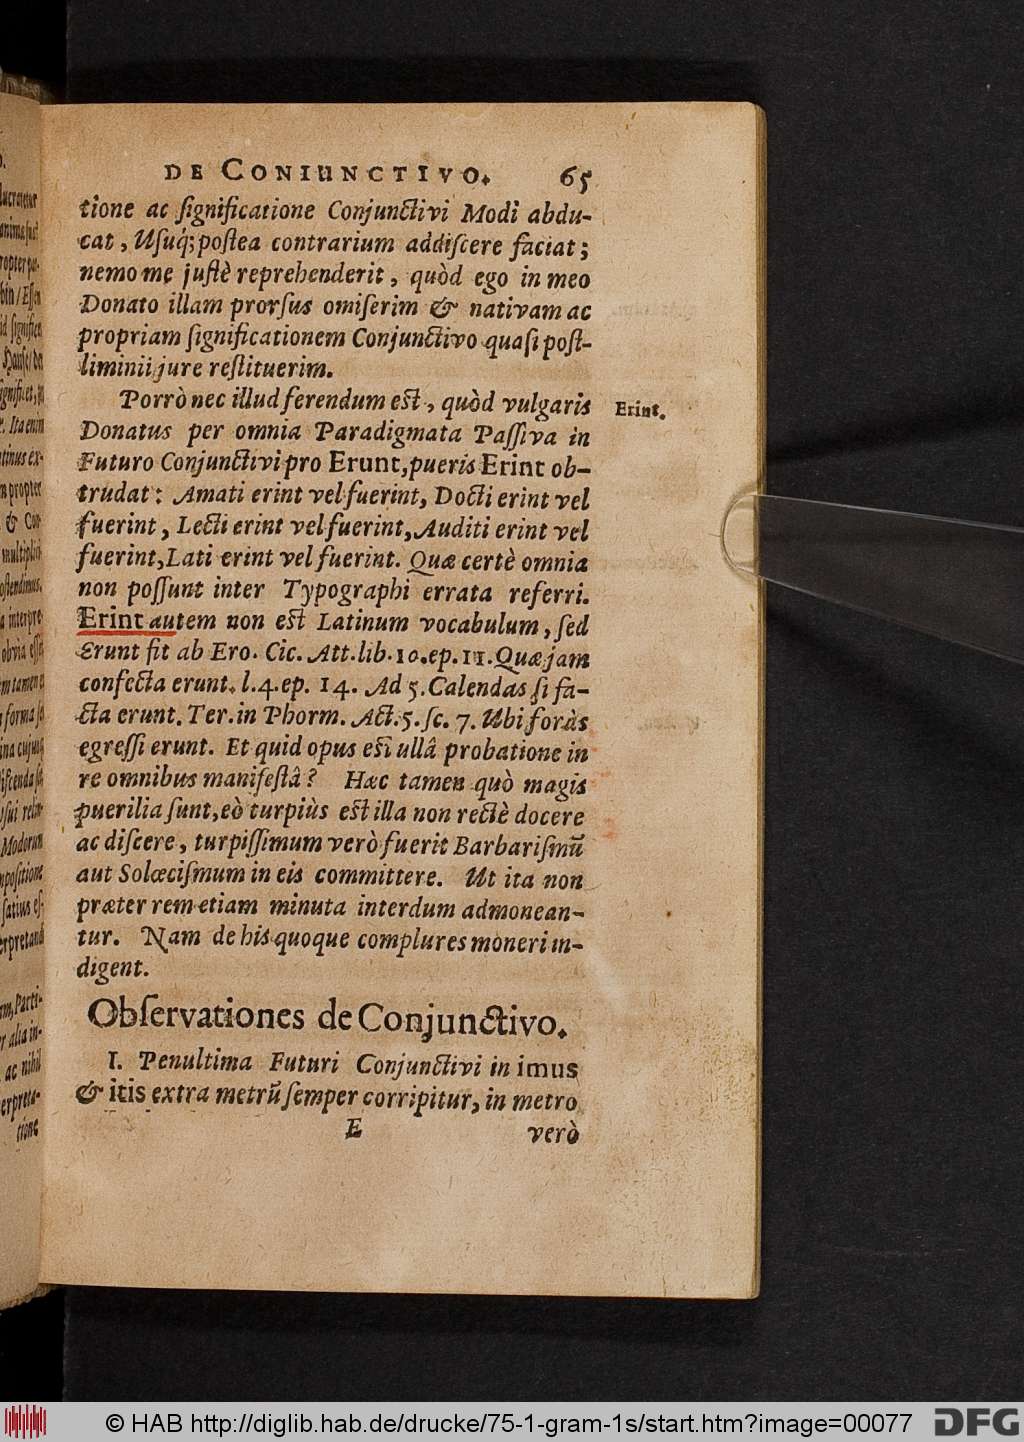 DE CONIUNCTIVO. 65
tione ac ſignificatione Conjunctivi Modi abdu-
cat, Uſuq́; poſtea contrarium addiſcere faciat;
nemo me juſtè reprehenderit, quòd ego in meo
Donato illam prorſus omiſerim & nativam ac
propriam ſignificationem Conjunctivo quaſi poſt-
liminii jure reſtituerim.
Porrò nec illud ferendum est, quòd vulgaris
Erint.
Donatus per omnia Paradigmata Paſſiva in
Futuro Conjunctivi pro Erunt, pueris Erint ob-
trudat: Amati erint vel fuerint, Docti erint vel
fuerint, Lecti erint vel fuerint, Auditi erint vel
fuerint, Lati erint vel fuerint. Quæ certè omnia
non poſſunt inter Typographi errata referri.
Erint autem non est Latinum vocabulum, ſed
Erunt fit ab Ero. Cic. Att. lib. 10. ep. 11. Quæ jam
confecta erunt. l. 4. ep. 14. Ad 5. Calendas ſi fa-
cta erunt. Ter. in Phorm. Act. 5. ſc. 7. Ubi foràs
egreſſi erunt. Et quid opus est ullâ probatione in
re omnibus manifeſtâ? Hæc tamen quò magis
puerilia ſunt, eò turpiùs est illa non rectè docere
ac diſcere, turpiſſimum verò fuerit Barbariſmū
aut Solœciſmum in eis committere. Ut ita non
præter rem etiam minuta interdum admonean-
tur. Nam de his quoque complures moneri in-
digent.
Obſervationes de Conjunctivo.
I. Penultima Futuri Conjunctivi in imus
& itis extra metrū ſemper corripitur, in metro
E verò
© HAB http://diglib.hab.de/drucke/75-1-gram-1s/start.htm?image=00077 DFG